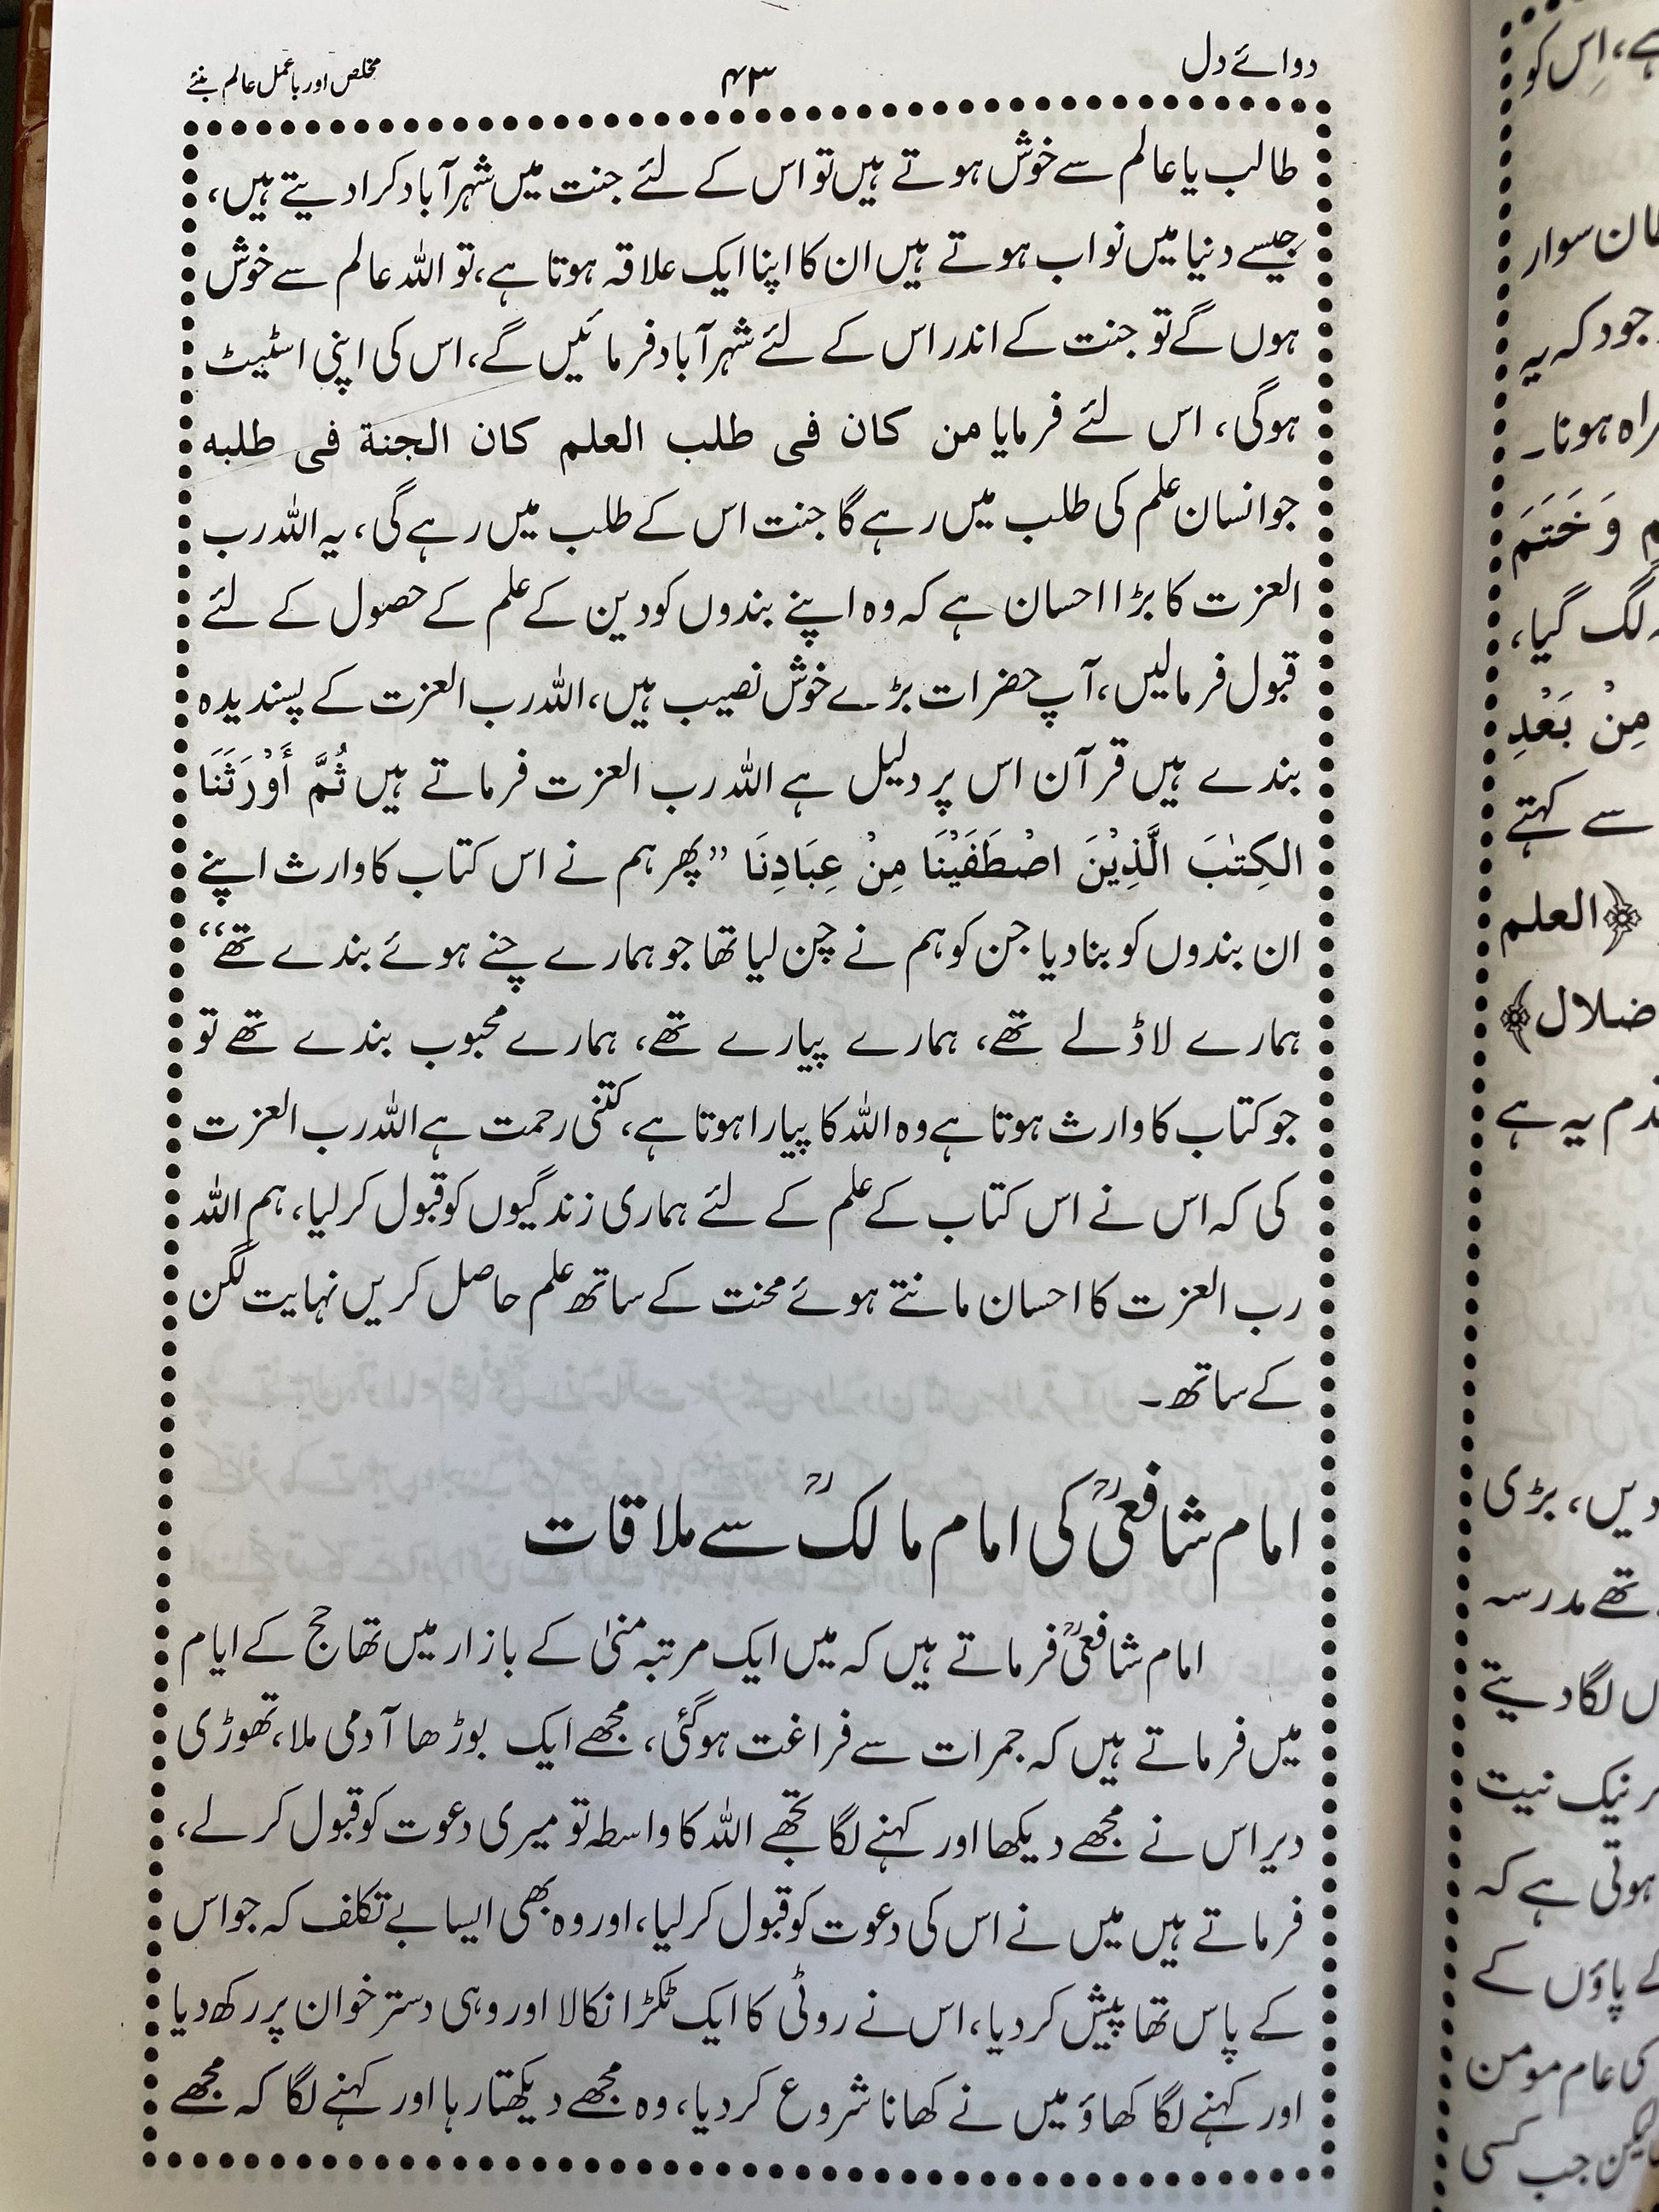 دوائے دل ۴۳ مخلص اور باعمل عالم بنئے
طالب یا عالم سے خوش ہوتے ہیں تو اس کے لئے جنت میں شہر آباد کرا دیتے ہیں،
جیسے دنیا میں نواب ہوتے ہیں ان کا اپنا ایک علاقہ ہوتا ہے، تو اللہ عالم سے خوش
ہوں گے تو جنت کے اندر اس کے لئے شہر آباد فرمائیں گے، اس کی اپنی اسٹیٹ
ہوگی، اس لئے فرمایا من کان فی طلب العلم کان الجنة فی طلبه
جو انسان علم کی طلب میں رہے گا جنت اس کے طلب میں رہے گی، یہ اللہ رب
العزت کا بڑا احسان ہے کہ وہ اپنے بندوں کو دین کے علم کے حصول کے لئے
قبول فرمالیں، آپ حضرات بڑے خوش نصیب ہیں، اللہ رب العزت کے پسندیدہ
بندے ہیں قرآن اس پر دلیل ہے اللہ رب العزت فرماتے ہیں ثُمَّ أَوْرَثَنَا
الکِتٰبَ الَّذِیْنَ اصْطَفَیْنَا مِنْ عِبَادِنَا ”پھر ہم نے اس کتاب کا وارث اپنے
ان بندوں کو بنادیا جن کو ہم نے چن لیا تھا جو ہمارے چنے ہوئے بندے تھے“
ہمارے لاڈلے تھے، ہمارے پیارے تھے، ہمارے محبوب بندے تھے تو
جو کتاب کا وارث ہوتا ہے وہ اللہ کا پیارا ہوتا ہے، کتنی رحمت ہے اللہ رب العزت
کی کہ اس نے اس کتاب کے علم کے لئے ہماری زندگیوں کو قبول کرلیا، ہم اللہ
رب العزت کا احسان مانتے ہوئے محنت کے ساتھ علم حاصل کریں نہایت لگن
کے ساتھ۔
امام شافعیؒ کی امام مالکؒ سے ملاقات
امام شافعیؒ فرماتے ہیں کہ میں ایک مرتبہ منیٰ کے بازار میں تھا حج کے ایام
میں فرماتے ہیں کہ جمرات سے فراغت ہوگئی، مجھے ایک بوڑھا آدمی ملا، تھوڑی
دیر اس نے مجھے دیکھا اور کہنے لگا تجھے اللہ کا واسطہ تو میری دعوت کو قبول کر لے،
فرماتے ہیں میں نے اس کی دعوت کو قبول کرلیا، اور وہ بھی ایسا بے تکلف کہ جو اس
کے پاس تھا پیش کر دیا، اس نے روٹی کا ایک ٹکڑا نکالا اور وہی دستر خوان پر رکھ دیا
اور کہنے لگا کھاؤ میں نے کھانا شروع کر دیا، وہ مجھے دیکھتا رہا اور کہنے لگا کہ مجھے
ہے، اِس کو
سوار
راہ ہونا۔
وَخَتَمَ
لگ گیا،
مِنْ بَعْدِ
سے کہتے
العلم
ضلال
یہ ہے
دیں، بڑی
تھے مدرسہ
لگا دیتے
نیک نیت
ہوتی ہے کہ
پاؤں کے
کی عام مومن
لیکن جب کسی